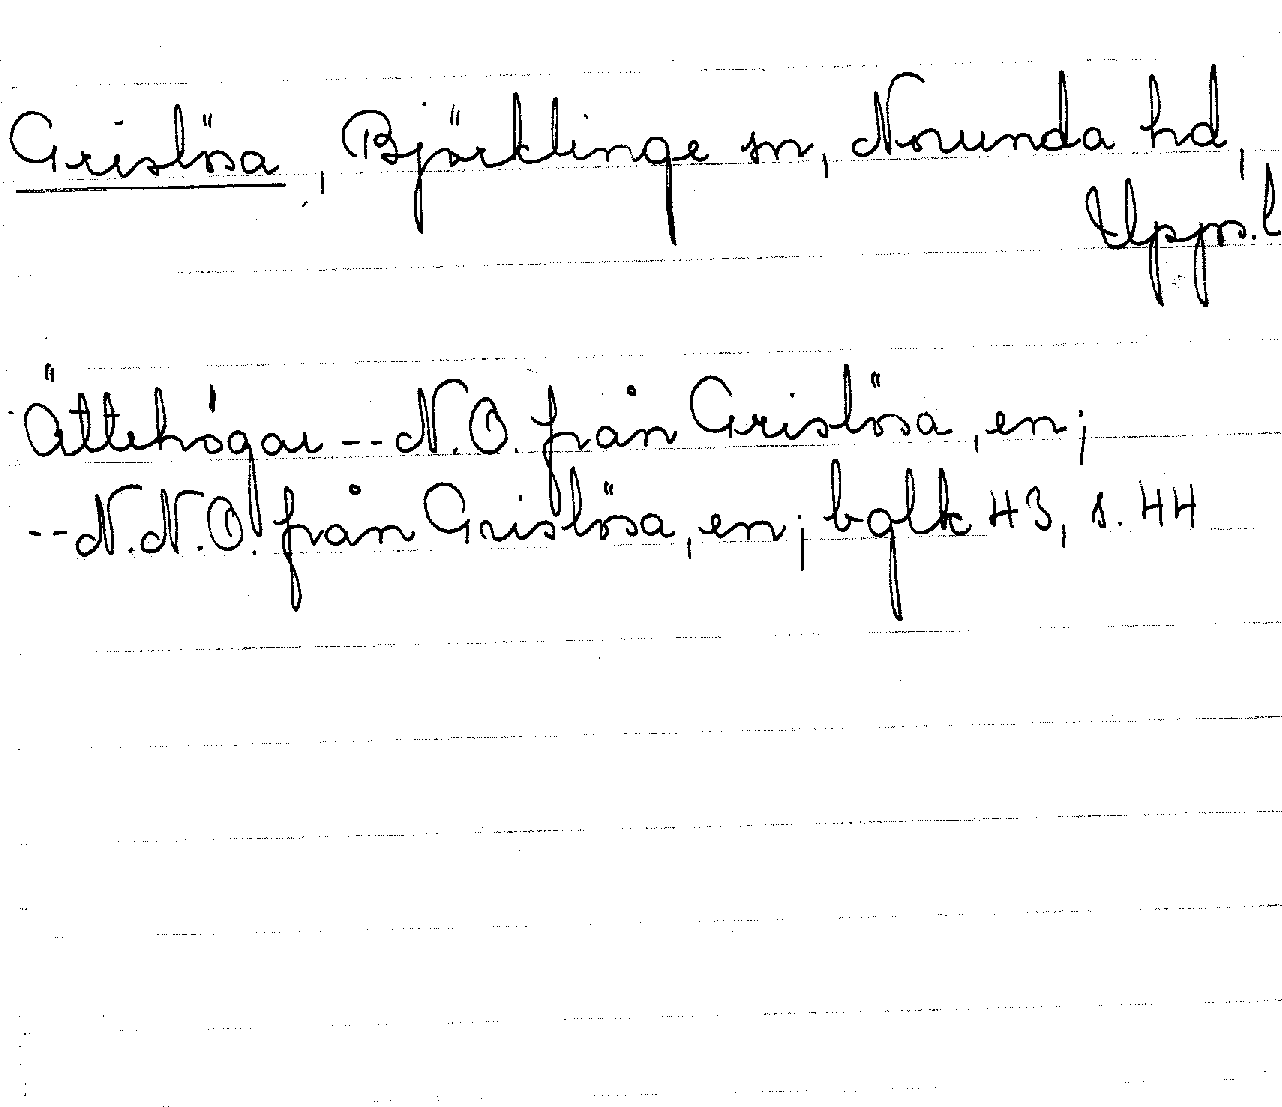 Grislösa, Björklinge sn, Norunda hd,
Upps. l
Ättehögar -- N.O. från Grislösa, en;
-- N.N.O. från Grislösa, en; bglk 43, s. 44